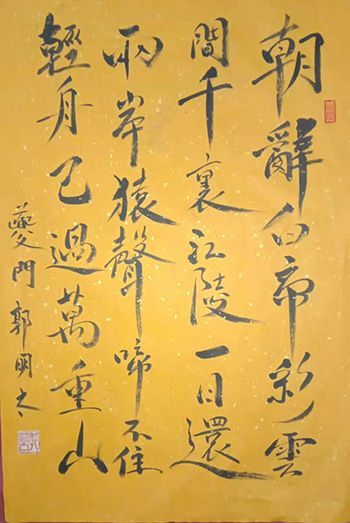 朝辭白帝彩雲
間千裏江陵一日還
兩岸猿聲啼不住
輕舟已過萬重山
夔門 郭明